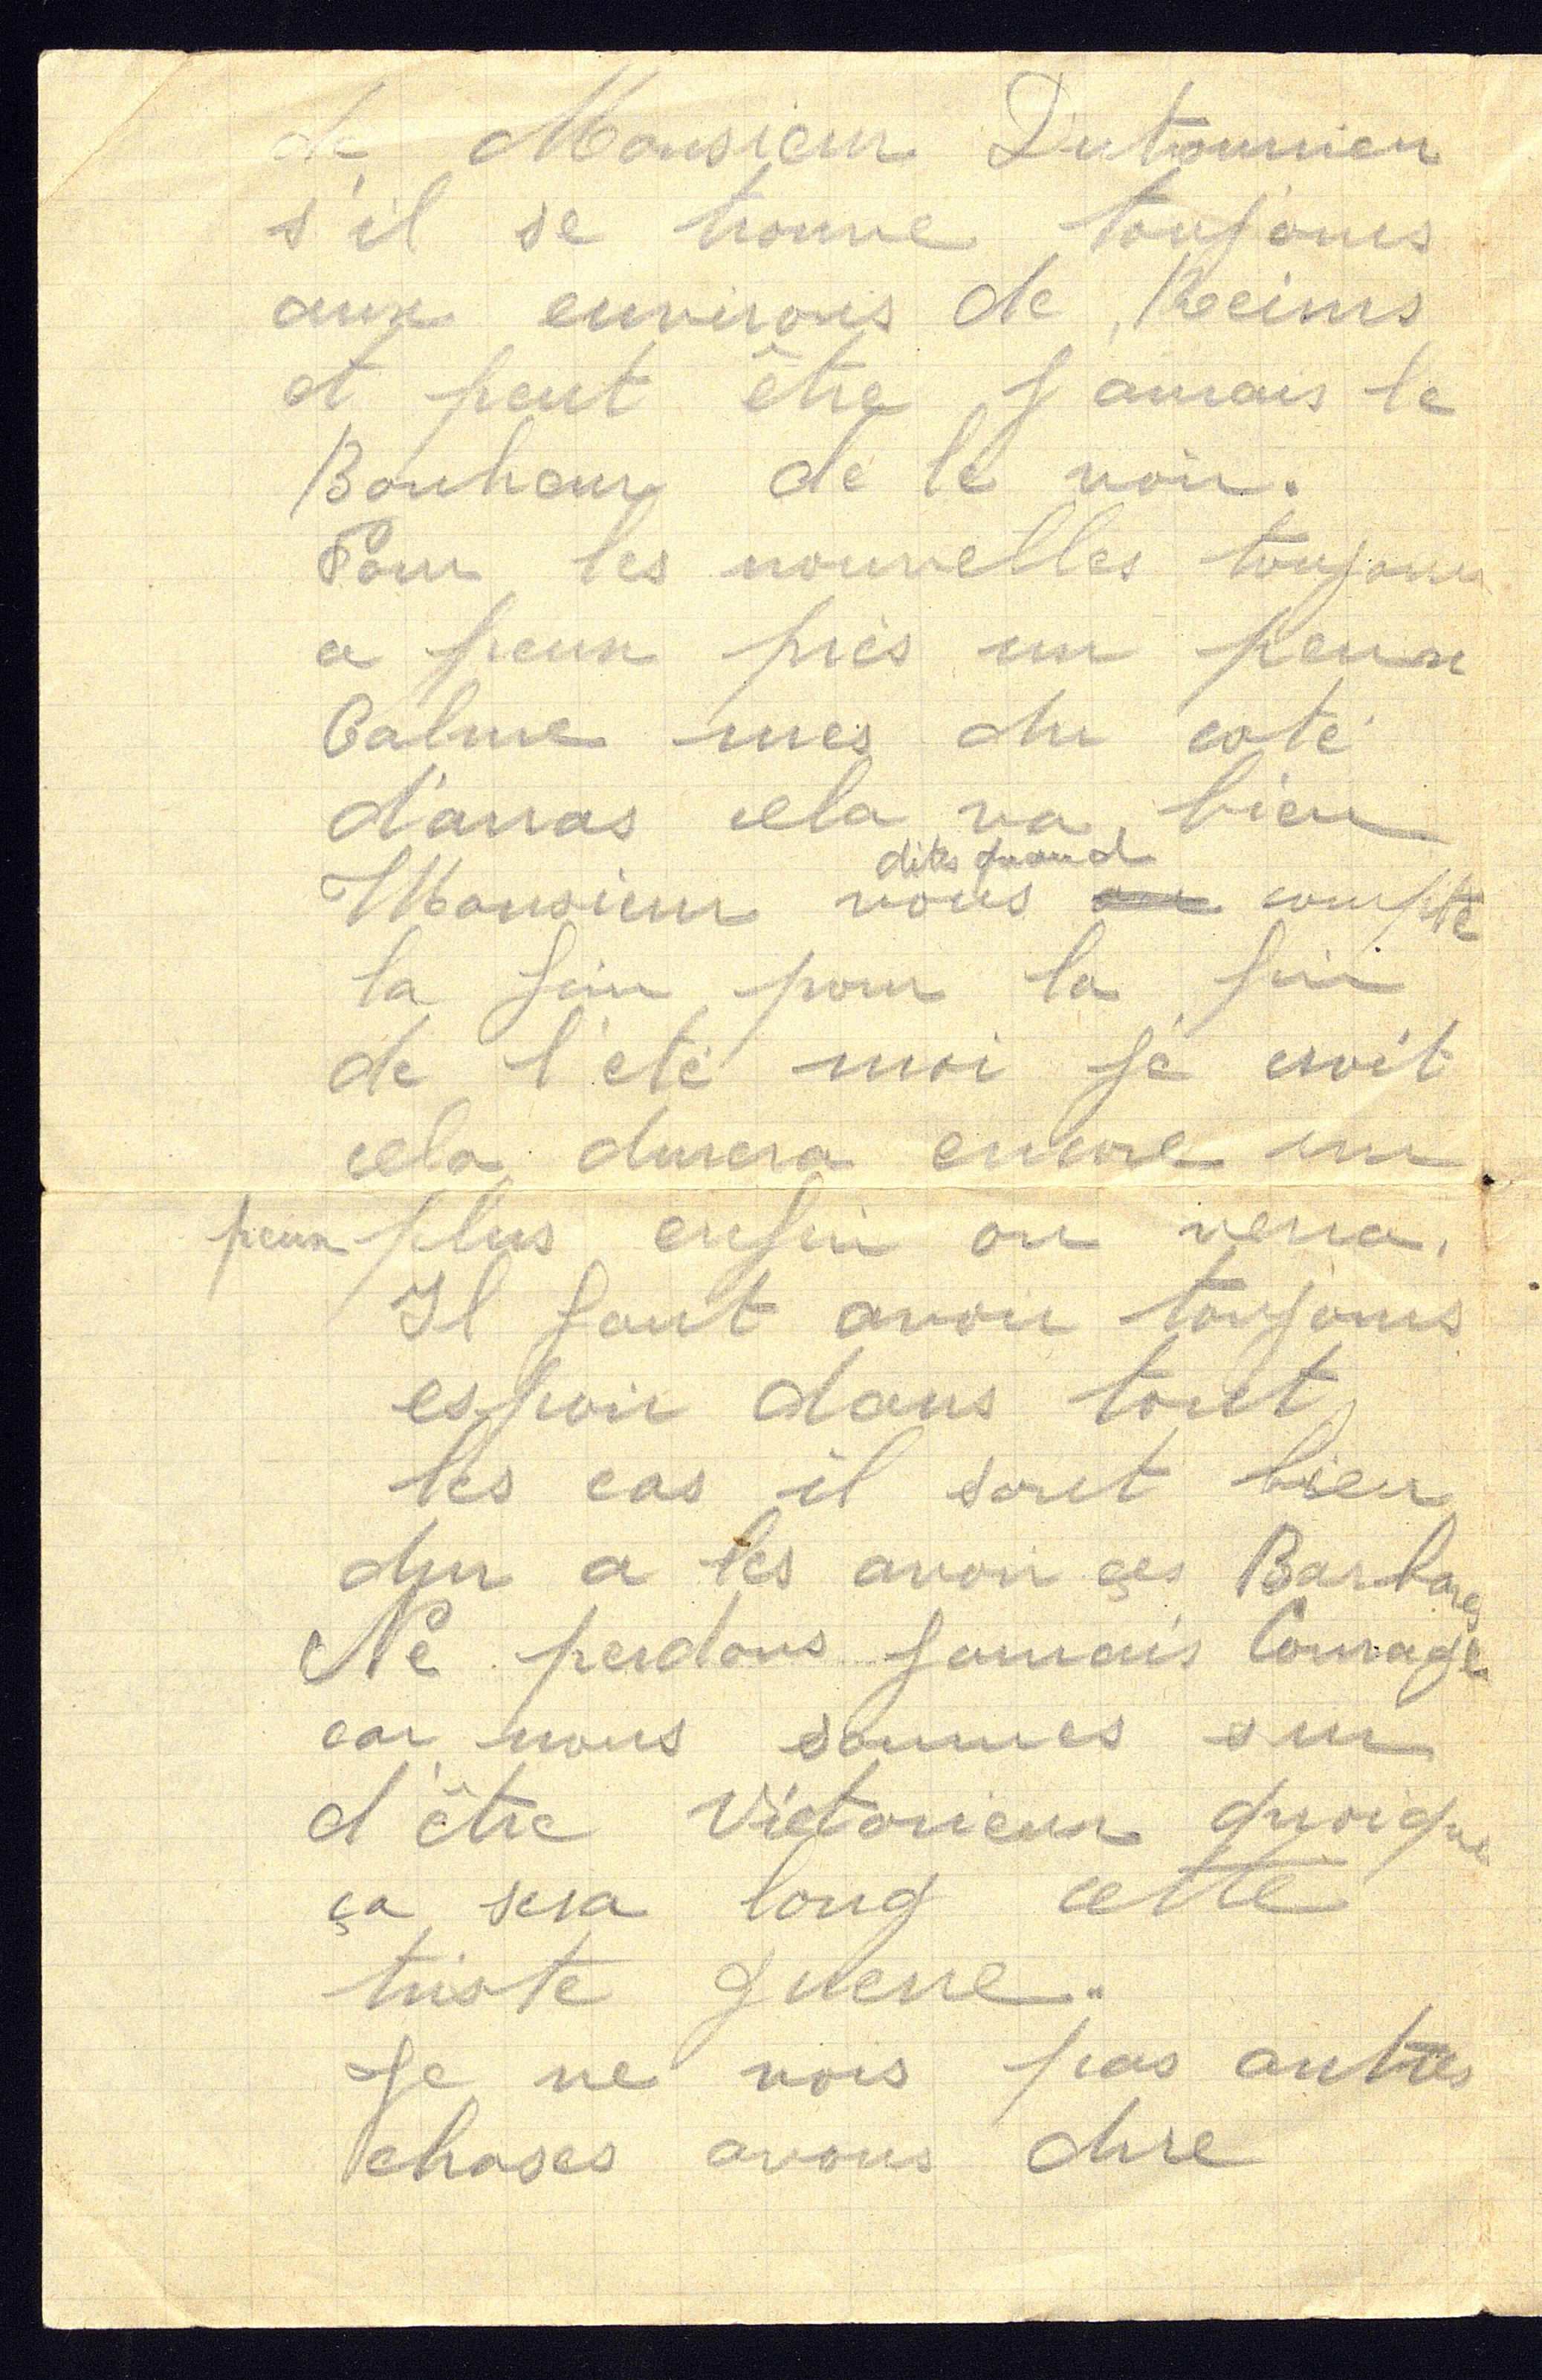 de Monsieur Dutournier
s'il se trouve toujours
aux environs de Reims
et peut être j aurais le
Bonheur de le voir.
Pour les nouvelles toujours
a peux près un peux
Calme mes du coté
d'arras cela va bien
dits quand
Monsieur vous on compte
la fin pour la fin
de l'eté moi je croit
cela durera encore un
peux plus enfin on verra.
Il faut avoir toujours
espoir dans tout
les cas il sont bien
dur a les avoir ces Barbares
Ne perdons jamais Courage
car nous sommes sur
d'être Victorieux quoique
ça sera long cette
triste guerre..
Je ne vois pas autres
choses avous dire